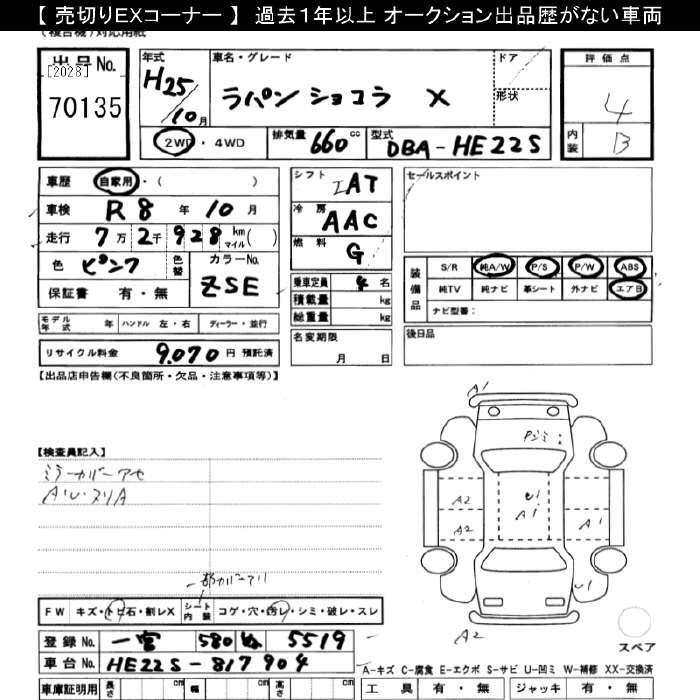 【 売切りEXコーナー 】 過去１年以上 オークション出品歴がない車両
(複合機)対応用紙
出品No.
[2028]
70135
年式 H25/10月
車名・グレード
ラパン ショコラ X
ドア
形状
評価点
4
内装 B
2WD・4WD
排気量 660 cc
型式 DBA-HE22S
車歴 自家用・( )
車検 R8年10月
走行 7万2千928 km マイル( )
色 ピンク
色替
カラーNo. ZSE
保証書 有・無
シフト IAT
冷房 AAC
燃料 G
乗車定員 4名
積載量 kg
総重量 kg
セールスポイント
装備品
S/R 純A/W P/S P/W ABS
純TV 純ナビ 革シート 外ナビ エアB
ナビ型番:
モデル年式 年 ハンドル 左・右 ディーラー・並行
リサイクル料金 9,070円 預託済
名変期限
月 日
後日品
【出品店申告欄(不良箇所・欠品・注意事項等)】
【検査員記入】
ミラーカバーアセ
A・U・ヌリA
A1
Pジミ
A2
A2
U1
A1
A1
U1
A2
スペア
FW キズ・トビ石・割レX
シート内装 コゲ・穴・汚レ・シミ・破レ・スレ
登録No. 一宮 580 ぬ 5519
車台No. HE22S-817904
車庫証明用 長さ cm 幅 cm 高さ cm
A-キズ C-腐食 E-エクボ S-サビ U-凹ミ W-補修 XX-交換済
工具 有・無 ジャッキ 有・無